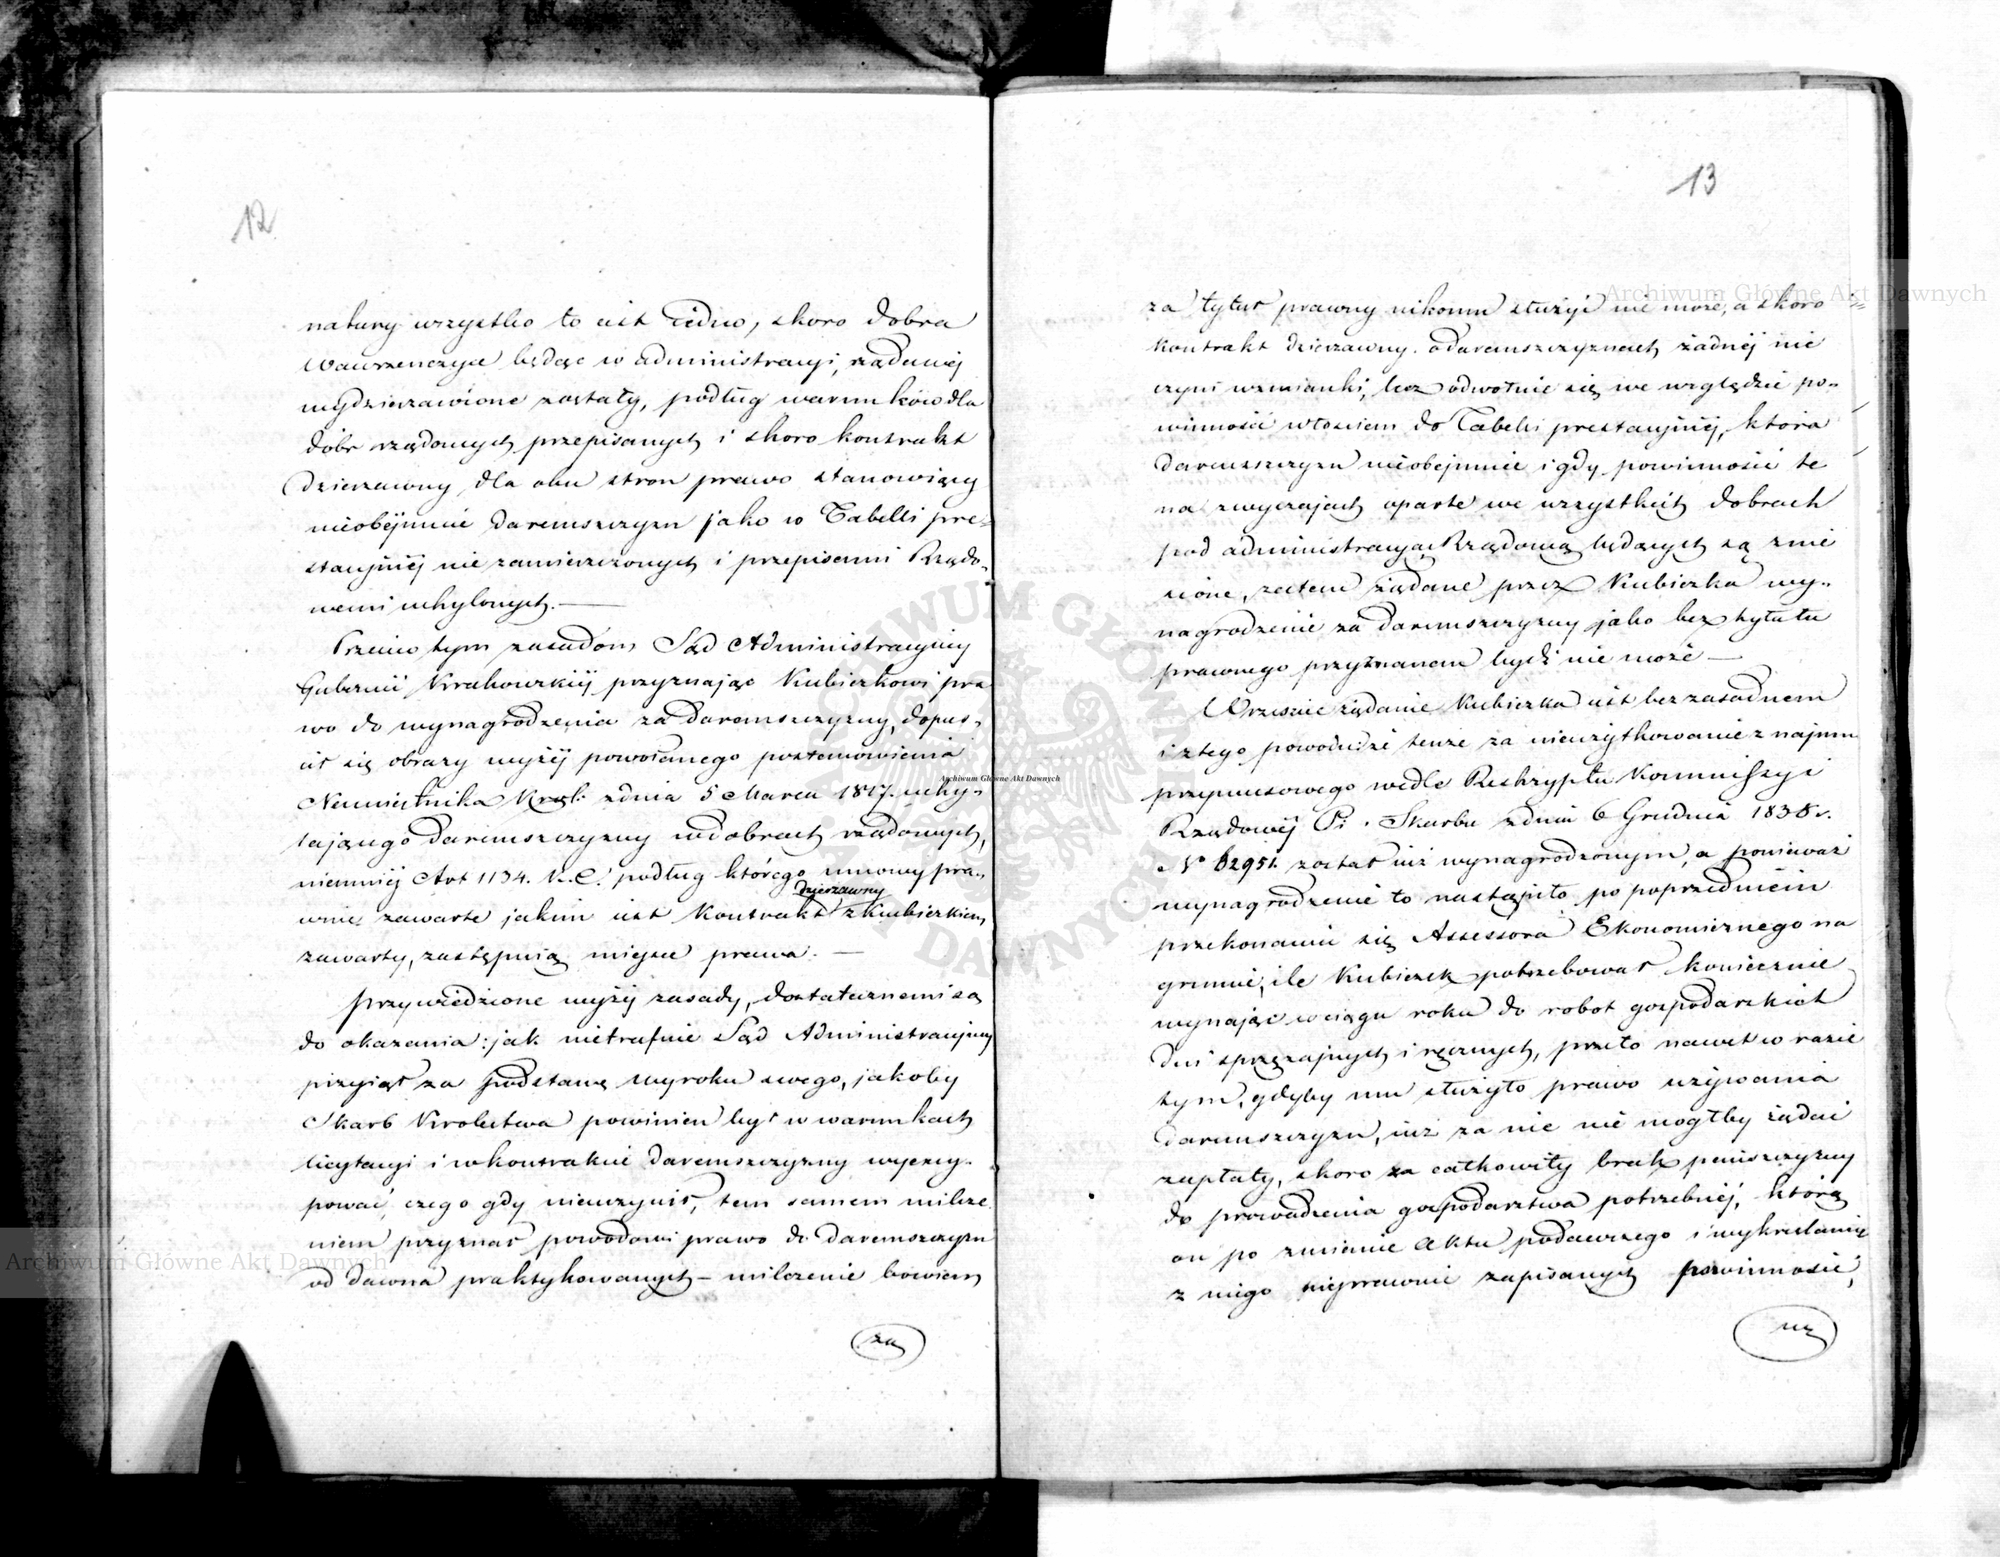 12
natury wszystko to iest iedno, skoro dobra
Wawrzenczyce będąc w administracyi, rządowéj
wydzierzawione zostały, podług warunków dla
dóbr rządowych przepisanych i skoro kontrakt
dzierzawny, dla obu stron prawo stanowiący
nieobéjmuie daremszczyzn jako w Tabelli pre-
stacyjnéj nie zamieszczonych i przepisami Rządo-
wemi uchylonych. —
Przeciw tym zasadóm Sąd Administracyiny
Gubernii Krakowskiéj przyznając Kubiczkowi pra
wo do wynagrodzenia za daremszczyzny, dopuś-
cił się obrazy wyżéj powołanego postanowienia
Namiestnika Król: z dnia 5 Marca 1817. uchy-
lającego daremszczyzny w dobrach rządowych,
niemniéj Art 1134. K. C. podług którego umowy pra-
wnie zawarte jakim iest Kontrakt dzierzawny z Kubiczkiem
zawarty, zastępuią miejsce prawa. —
Przywiedzione wyżéj zasady, dostatecznemi są
do okazania: jak nietrafnie Sąd Administracyjny
przyiął za podstawę wyroku swego, jakoby
Skarb Królestwa powinien był w warunkach
licytacyi i w kontrakcie daremszczyzny wyszcy-
pować, czego gdy nieuczynił, tem samem milcze
niem przyznał powodowi prawo do daremszczyzn
od dawna praktykowanych – milczenie bowiem
za
13
za tytuł prawny nikomu służyć nie może, a skoro
kontrakt dzierzawny o daremszczyznach żadnéj nie
czyni wzmianki, lecz odwołuie się we względzie po-
winności włościan do Tabelli prestacyjnéj, która
daremszczyzn nieobejmuie i gdy powinności te
na zwyczajach oparte we wszystkich dobrach
pod administracyą Rządową będących są znie
sione, zatem żądane przez Kubiczka wy-
nagrodzenie za daremszczyzny jako bez tytułu
prawnego przyznanem bydź nie może —
Wreszcie żądanie Kubiczka iest bezzasadnem
i z tego powodu że tenże za nieużytkowanie z najmu
przymusowego wedle Reskryptu Kommissyi
Rządowéj P. i Skarbu z dnia 6 Grudnia 1838 r.
No 62951. został iuż wynagrodzonym, a ponieważ
wynagrodzenie to nastąpiło po poprzedniem
przekonaniu się Assessora Ekonomicznego na
gruncie, ile Kubiczek potrzebował koniecznie
wynająć w ciągu roku do robot gospodarskich
dni sprzężajnych i ręcznych, przeto nawet w razie
tym, gdyby mu służyło prawo używania
daremszczyzn, iuż za nie nie mogłby żądać
zapłaty, skoro za całkowity brak pańszczyzny
do prowadzenia gospodarstwa potrzebnéj, którą
on po zmianie aktu podawczego i wykreśleniu
z niego nieprawnie zapisanych powinności,